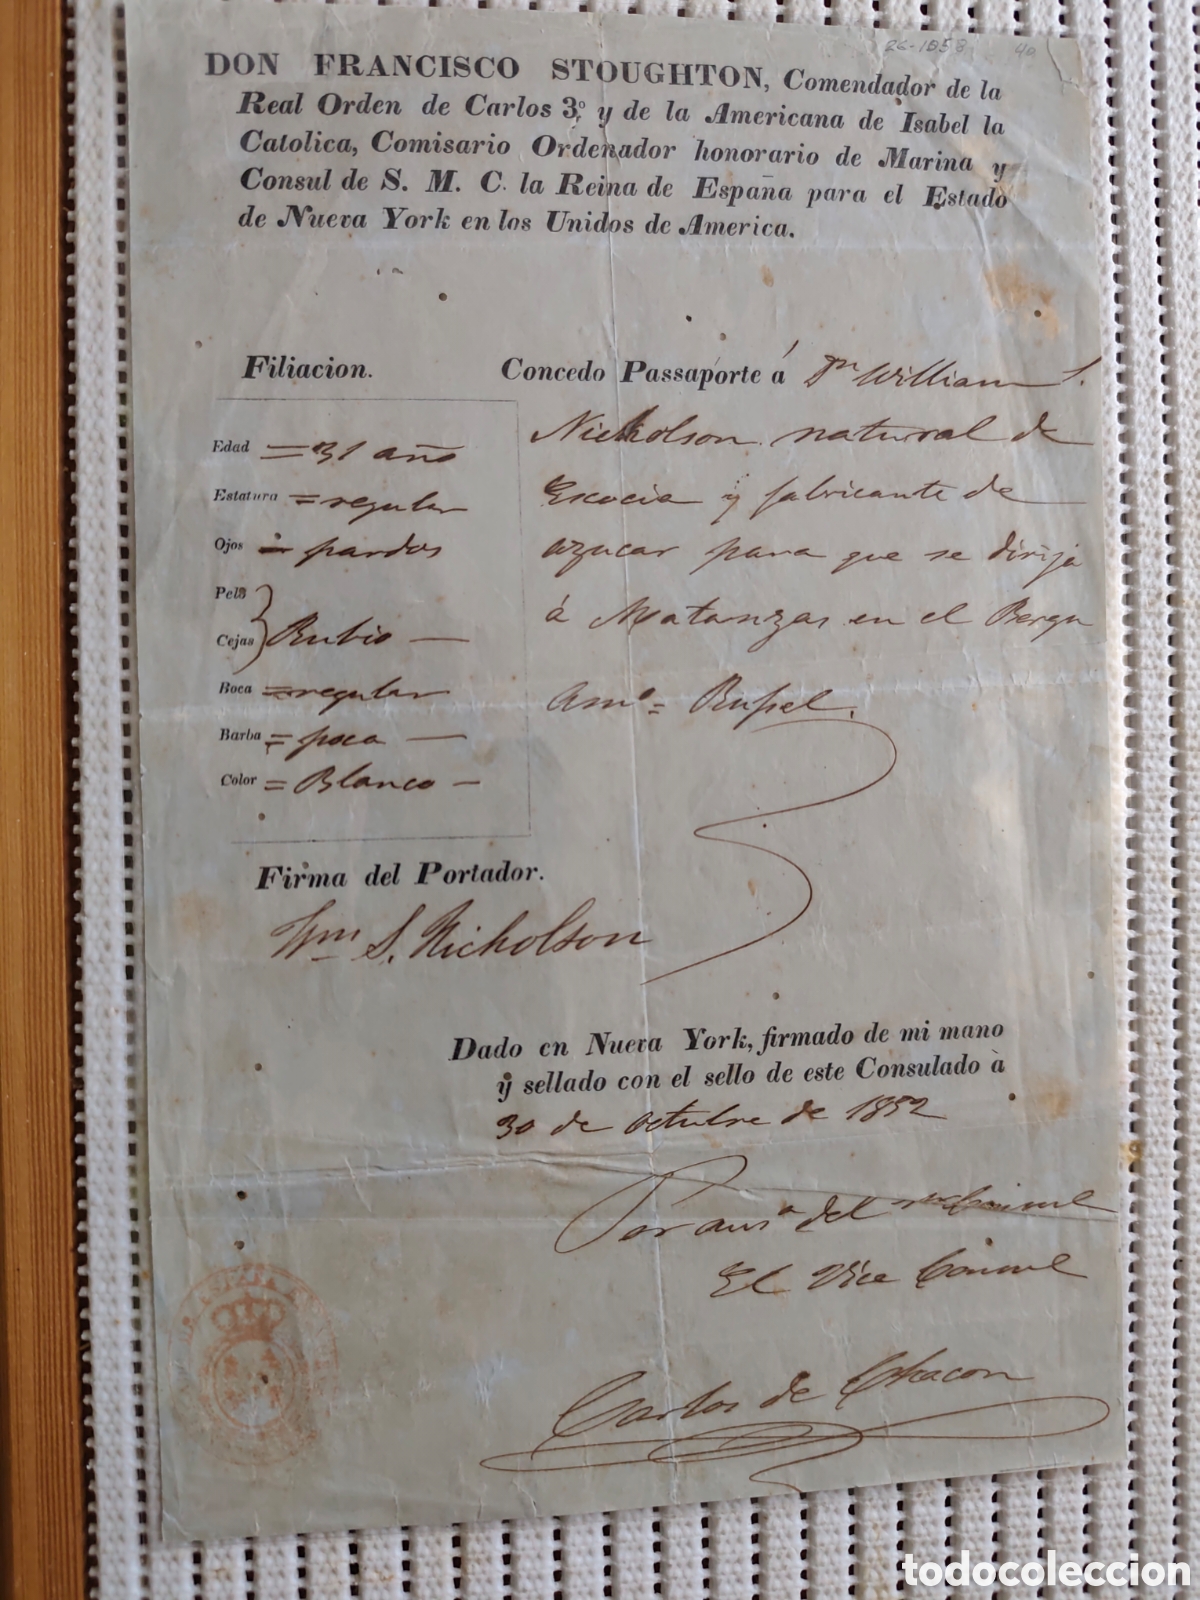 26-1058 40
DON FRANCISCO STOUGHTON, Comendador de la
Real Orden de Carlos 3º y de la Americana de Isabel la
Catolica, Comisario Ordenador honorario de Marina y
Consul de S. M. C. la Reina de España para el Estado
de Nueva York en los Unidos de America.
Filiacion.
Edad = 31 año
Estatura = regular
Ojos = pardos
Pelo
Cejas } Rubio —
Boca = regular
Barba = poca —
Color = Blanco —
Concedo Passaporte á Dn William S.
Nickolson natural de
Escocia y fabricante de
azucar para que se dirija
á Matanzas en el Bergn
Amº = Russel.
Firma del Portador.
Wm S. Nicholson
Dado en Nueva York, firmado de mi mano
y sellado con el sello de este Consulado à
30 de octubre de 1852
Por ausª del Consul
El Vice Consul
Carlos de Chacon
todocoleccion